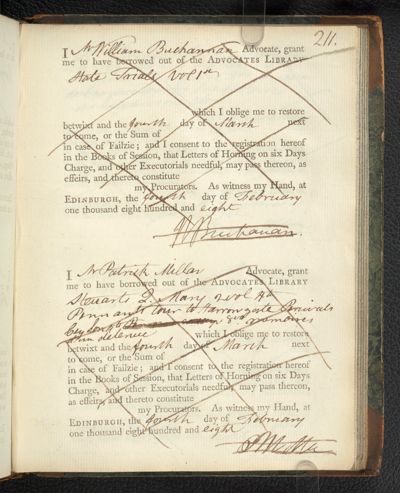 211.
I Mr William Buchannan Advocate, grant
me to have borrowed out of the ADVOCATES LIBRARY
State Trials Vol 1st
which I oblige me to restore
betwixt and the fourth day of March next
to come, or the Sum of
in case of Failzie; and I consent to the registration hereof
in the Books of Session, that Letters of Horning on six Days
Charge, and other Executorials needful, may pass thereon, as
effeirs, and thereto constitute
my Procurators. As witness my Hand, at
EDINBURGH, the fourth day of February
one thousand eight hundred and eight
W Buchanan.
I Mr Patrick Mellar Advocate, grant
me to have borrowed out of the ADVOCATES LIBRARY
Stuarts Q. Mary 2 vol 4to
Pennants tour to Harrowgate Percivals
Ceylon 3rd memoires
defence which I oblige me to restore
betwixt and the fourth day of March next
to come, or the Sum of
in case of Failzie; and I consent to the registration hereof
in the Books of Session, that Letters of Horning on six Days
Charge, and other Executorials needful, may pass thereon,
as effeirs, and thereto constitute
my Procurators. As witness my Hand, at
EDINBURGH, the fourth day of February
one thousand eight hundred and eight